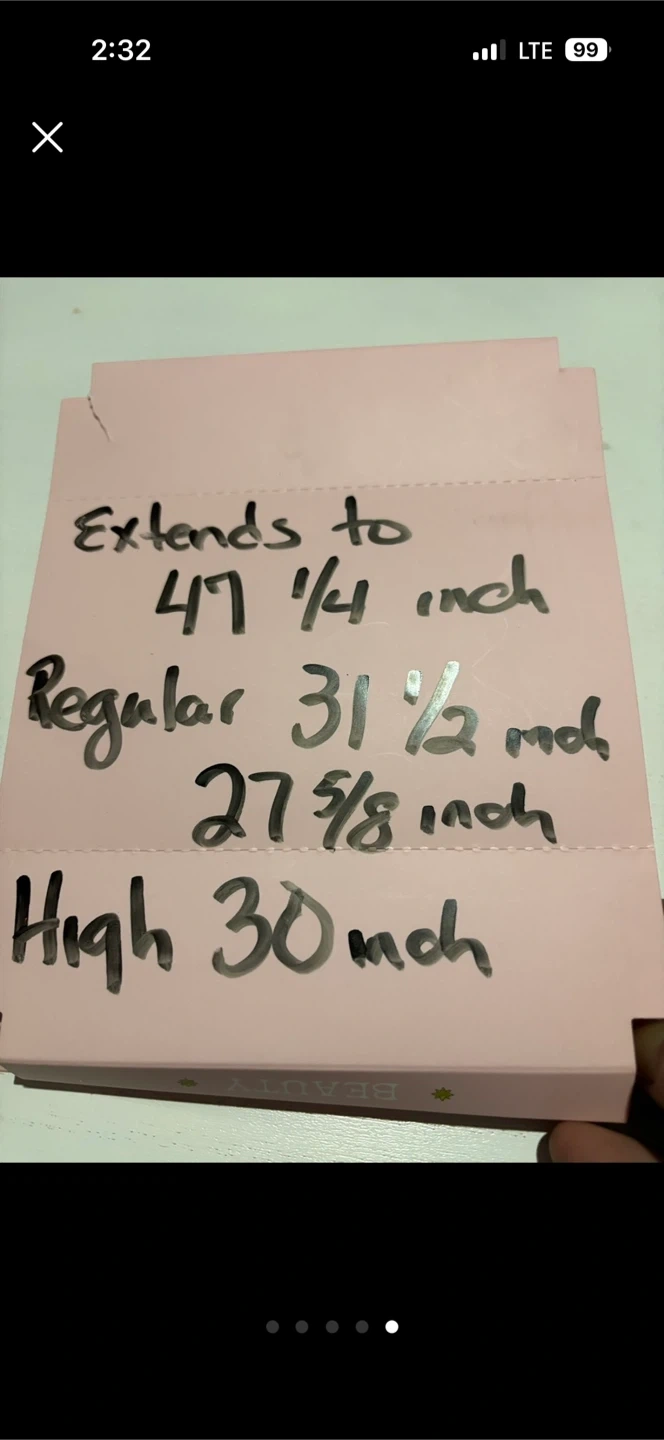 2:32 LTE 99
Extends to
47 1/4 inch
Regular 31 1/2 inch
27 5/8 inch
High 30 inch
BEAUTY